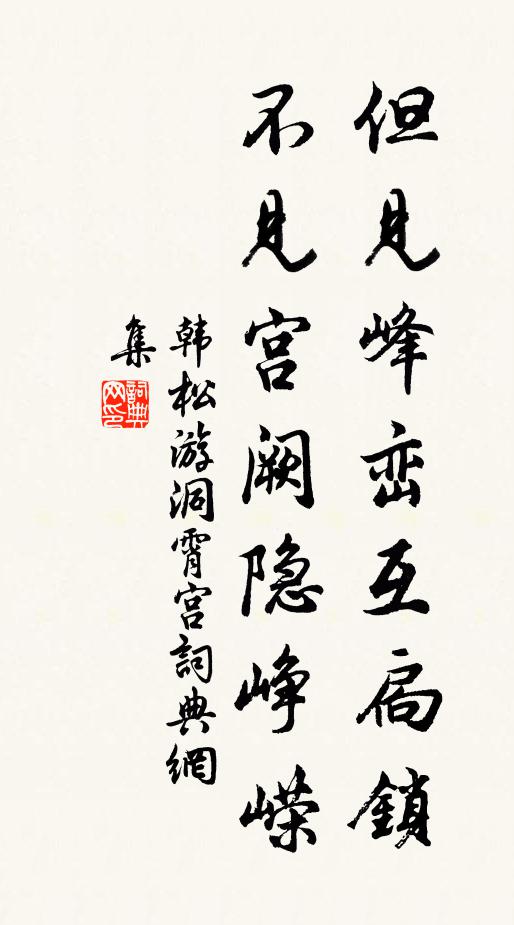 但见峰峦互扃鎖
不见宫阙隐峥嵘
韩松游洞霄宫詞典網
集
詞典
网印